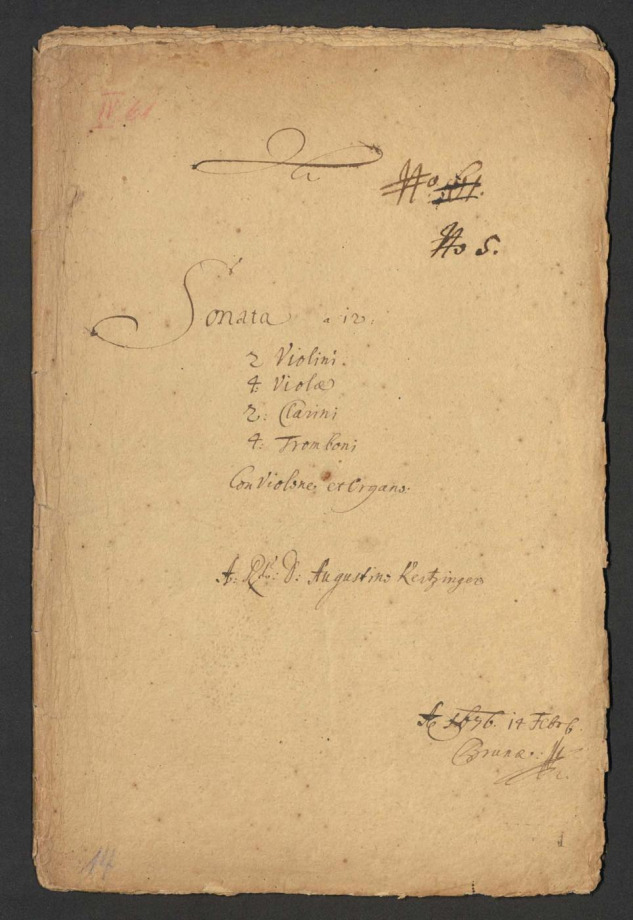 IV 61
No 5.
Sonata a 12.
2 Violini.
4: Violæ
2: Clarini
4: Tromboni
Con Violone et Organo.
A: Rdo: D: Augustino Kertzinger
Ao 1676. 14 Febr
Brunæ.
14